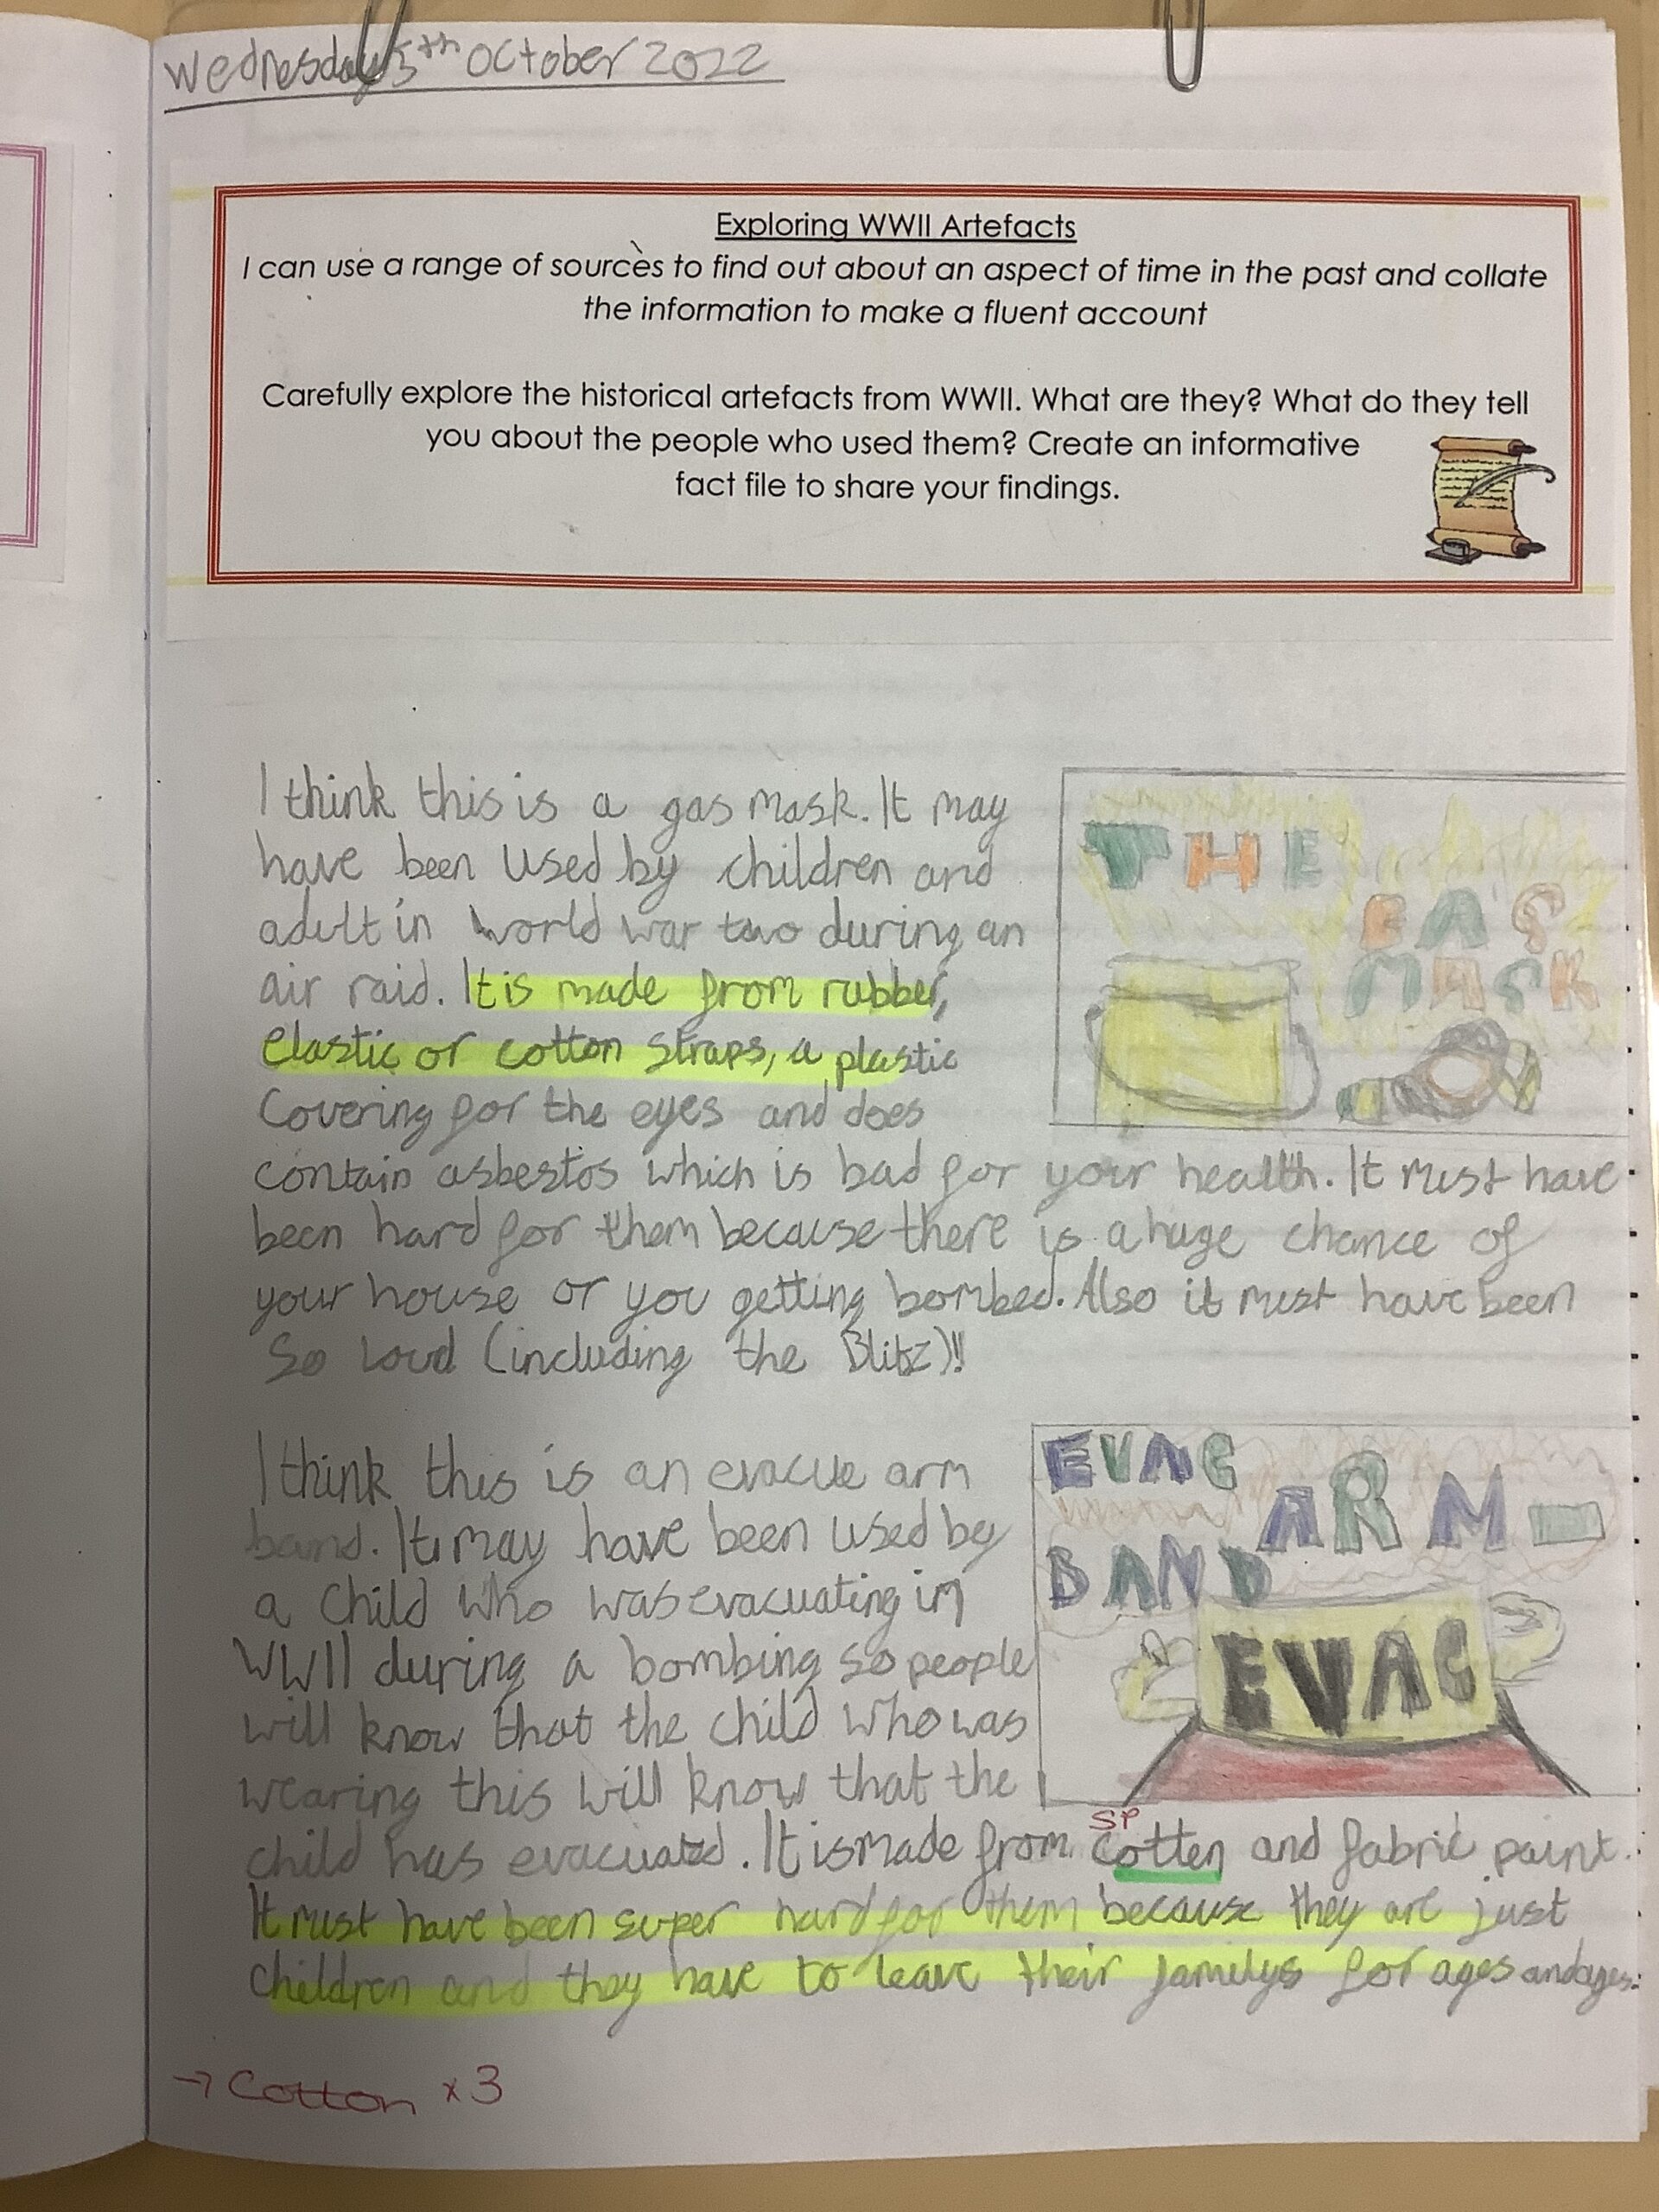 Wednesday 5th October 2022
Exploring WWII Artefacts
I can use a range of sources to find out about an aspect of time in the past and collate
the information to make a fluent account
Carefully explore the historical artefacts from WWII. What are they? What do they tell
you about the people who used them? Create an informative
fact file to share your findings.
I think this is a gas mask. It may
have been used by children and
adult in world war two during an
air raid. It is made from rubber,
elastic or cotton straps, a plastic
covering for the eyes and does
contain asbestos which is bad for your health. It must have
been hard for them because there is a huge chance of
your house or you getting bombed. Also it must have been
so loud (including the Blitz)!!
THE
GAS
MASK
I think this is an evacue arm
band. It may have been used by
a child who was evacuating in
WWII during a bombing so people
will know that the child who was
wearing this will know that the
child has evacuated. It is made from cotten and fabric paint.
It must have been super hard for them because they are just
children and they have to leave their familys for ages and ages.
EVAC
ARM-
BAND
EVAC
SP
→ Cotton x3